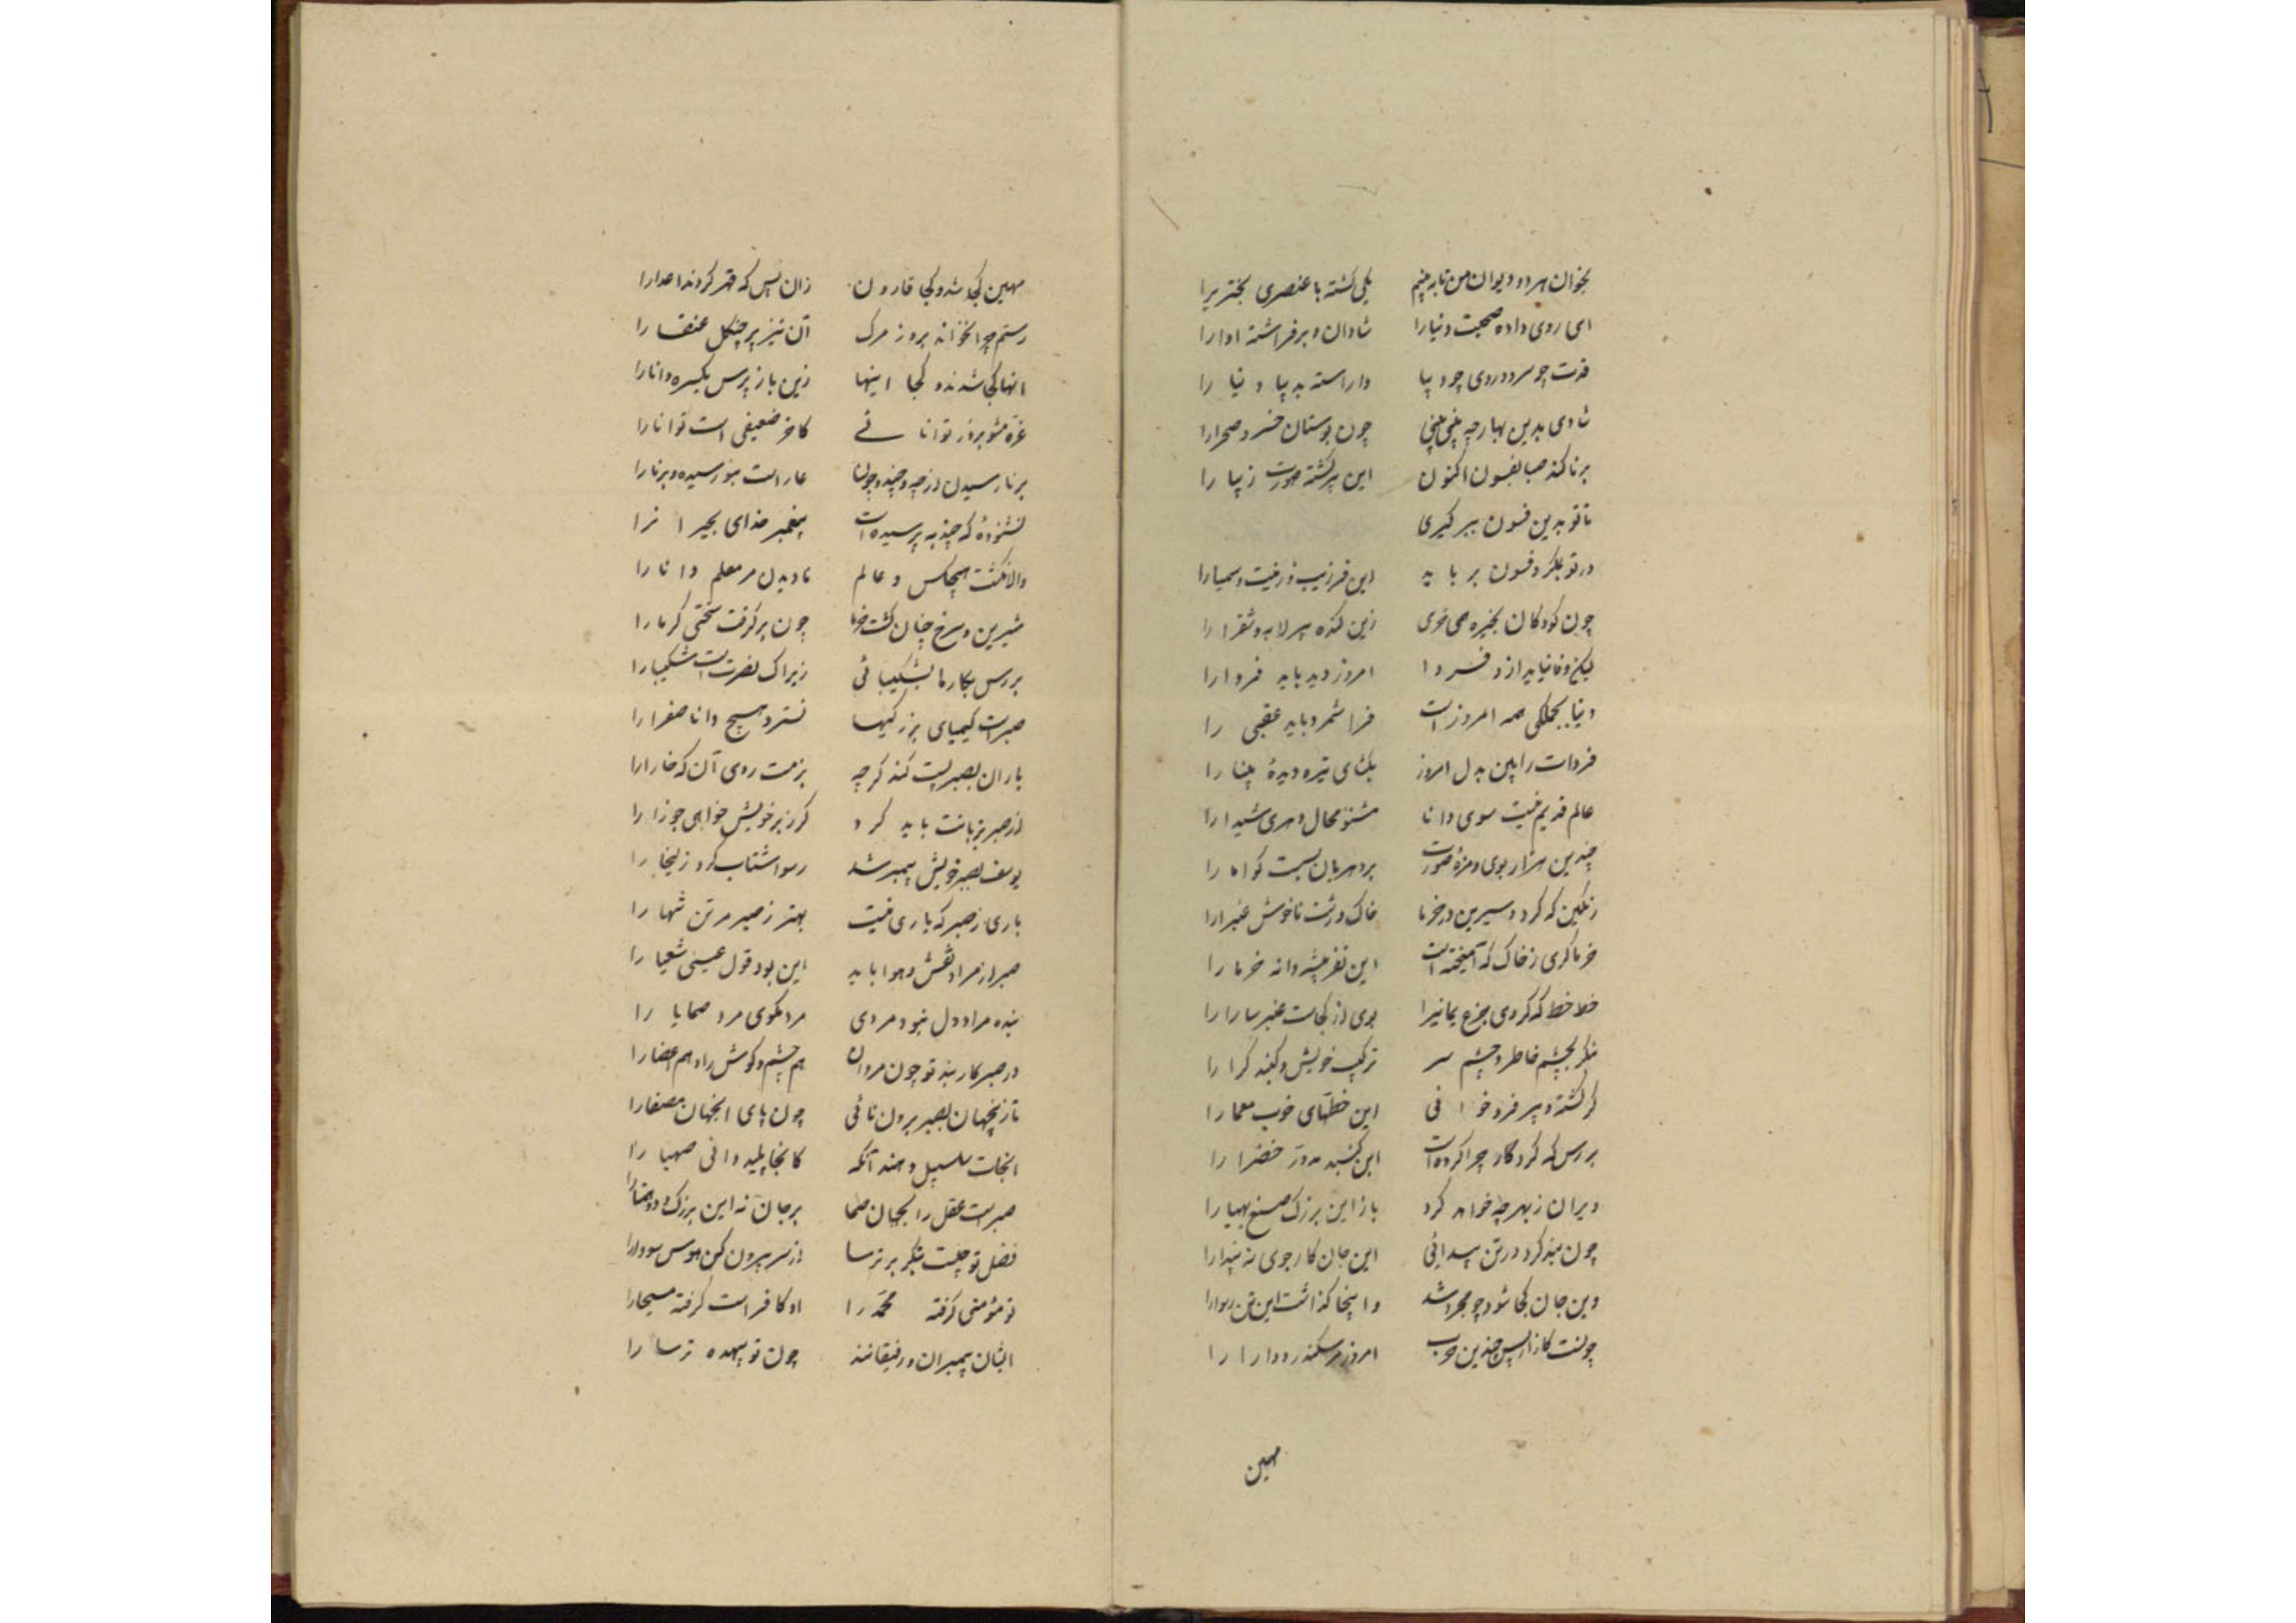 بخوان هر دو دیوان من تا به بینم یکی گشته با عنصری بحتریرا
ای روی داده صحبت دنیارا شادان و برفراشته اوارا
قدت چو سرو و روی چو دیبا واراسته بدیبا دنیا را
شادی بدین بهار چه می‌بینی چون بوستان خسرو صحرارا
برنا کند صبا بفسون اکنون این پیر گشته صورت زیبا را
تا تو بدین فسون ببر گیری
ورتو بمکر و فسون برباید این فر و زیب و زینت و سیمارا
چون کودکان بخیره همی خری زین گنده پیر لابه و شقرا را
لیکن وفا نیاید ازو فردا امروز دید باید فردارا
دنیا بجملگی همه امروز است فردا شمرد باید عقبی را
فردات را ببین بدل امروز بگشای تیره دیدهٔ بینا را
عالم قدیم نیست سوی دانا مشنو محال دهری شیدا را
چندین هزار بوی و مزهٔ صورت بر دهریان بس است گوا ما را
رنگین که کرد و شیرین در خرما خاک درشت ناخوش غبرارا
خرماگری ز خاک که آمیخته است این نغز پیشه دانه خرما را
خط خط که کردی جزع یمانیرا بوی از کجاست عنبر سارا را
بنگر بچشم خاطر و چشم سر ترکیب خویش و گنبد گردا را
گر گشته دبیر فرو خوانی این خطهای خوب معما را
بررس که کردگار چرا کرده است این گنبد مدور خضرا را
ویران ز بهر چه خواهد کرد باز این بزرگ صنع مهیا را
چون بند کرد در تن پیدائی این جان کارجوی نه پیدا را
وین جان کجا شود چو مجرد شد و اینجا گذاشت این تن رسوا را
چونست کار از پس چندین حرب امروز مر سکندر و دارا را
مهین
مهین کجا شد و کجا قارون زان پس که قهر کردند اعدا را
رستم چرا نخواند بروز مرگ آن تیز پر چنگل عنقا را
انها کجا شدند و کجا اینها زین باز پرس یکسره دانا را
غره مشو بزور توانائی کاخر ضعیفی است توانا را
برنا رسیدن از چه و چند و چون عار است نورسیده و برنا را
نشنودهٔ که چند به پرسیده است پیغمبر خدای بحیرا را
والا نگشت هیچکس و عالم نادیدن مر معلم دانا را
شیرین و سرخ چنان گشت خرما چون برگرفت سختی گرما را
بررس بکارها بشکیبائی زیراک نصرت است شکیبا را
صبرست کیمیای بزرگیها نستود هیچ دانا صفرا را
باران بصبر پست کند گرچه نرمست روی آن که خارا را
از صبر نردبانت باید کرد گر زیر خویش خواهی جوزا را
یوسف بصبر خویش پیمبر شد رسوا شتاب کرد زلیخا را
یاری ز صبر که یاری نیست بهتر ز صبر مر تن تنها را
صبر از مراد نفس و هوا باید این بود قول عیسی شعیا را
بنده مراد دل نبود مردی مردمگوی مرد صحابا را
در صبر کار بند تو چون مردان هم چشم و گوش را و هم اعضا را
تا زینجهان بصبر برون نائی چون پای انجهان مصفا را
انجات سلسبیل دهند آنکه کانجا پلید دانی صهبا را
صبر است عقل را بجهان همتا بر جان نه این بزرگ دو همتا را
فضل تو چیست بنگر بر ترسا از سر بیرون کن هوس سودا را
تو مؤمنی گرفته محمد را او کافر است گرفته مسیحا را
ایشان پیمبران و رفیقانند چون تو بیهده ترسا را